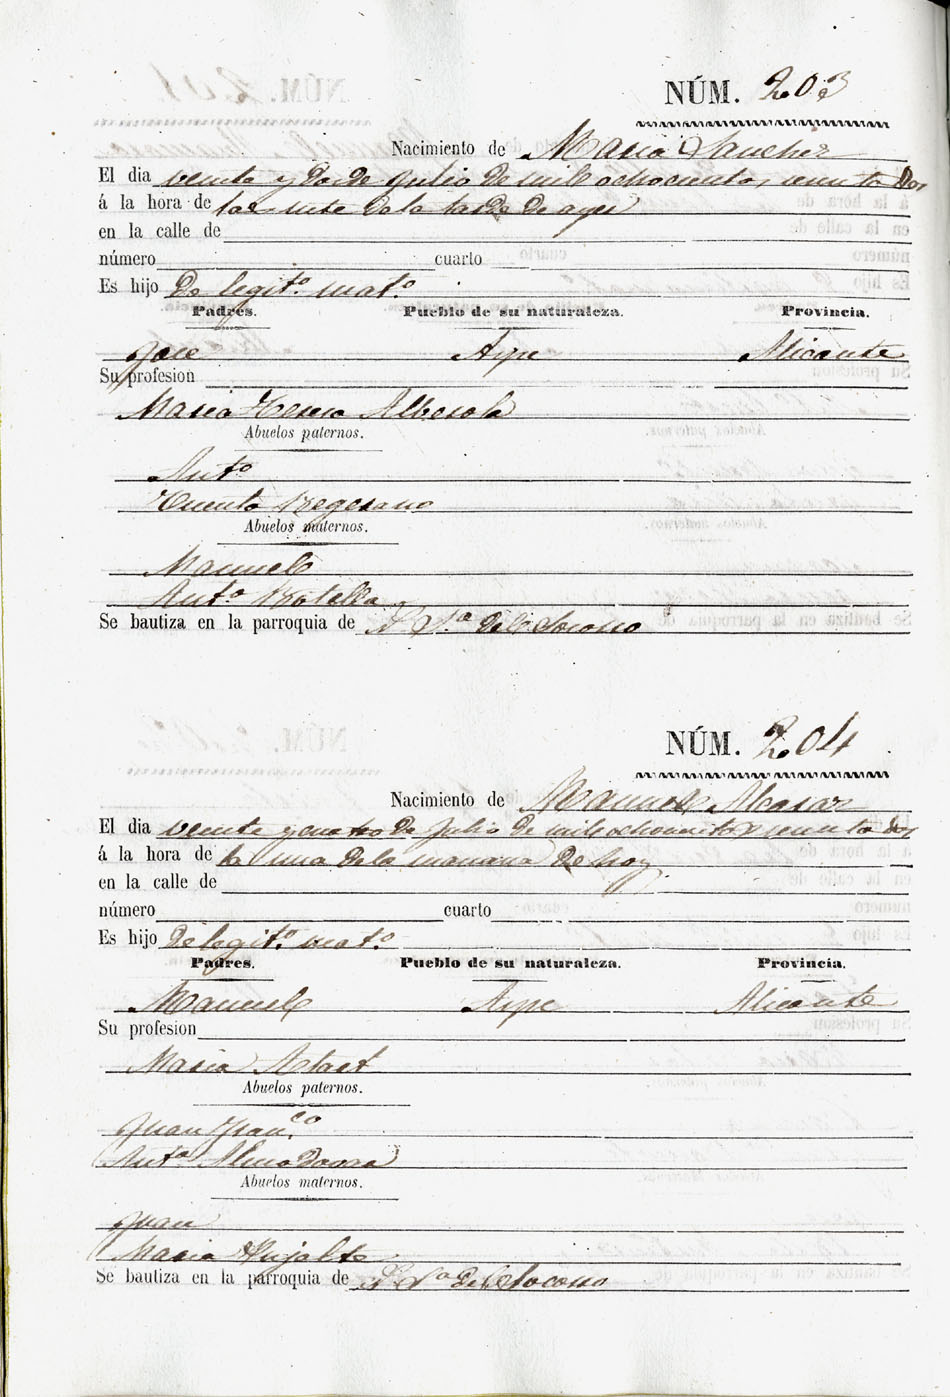 NÚM. 203
Nacimiento de Maria Sanchez
El dia veinte y dos de Julio de mil ochocientos sesenta dos
á la hora de las siete de la tarde de ayer
en la calle de
número cuarto
Es hijo De legit.º mat.º
Padres. Pueblo de su naturaleza. Provincia.
Jose Aspe Alicante
Su profesion
Maria Teresa Alberola
Abuelos paternos.
Ant.º
Vicenta
Abuelos maternos.
Manuel
Ant.ª Botella
Se bautiza en la parroquia de N S.ª del Socorro
NÚM. 204
Nacimiento de Manuel Alcaraz
El dia veinte y cuatro de Julio de mil ochocientos sesenta dos
á la hora de la una de la mañana de hoy
en la calle de
número cuarto
Es hijo de legit.º mat.º
Padres. Pueblo de su naturaleza. Provincia.
Manuel Aspe Alicante
Su profesion
Maria
Abuelos paternos.
Juan Fran.co
Ant.ª Almodovar
Abuelos maternos.
Juan
Maria Pujalte
Se bautiza en la parroquia de N S.ª del Socorro